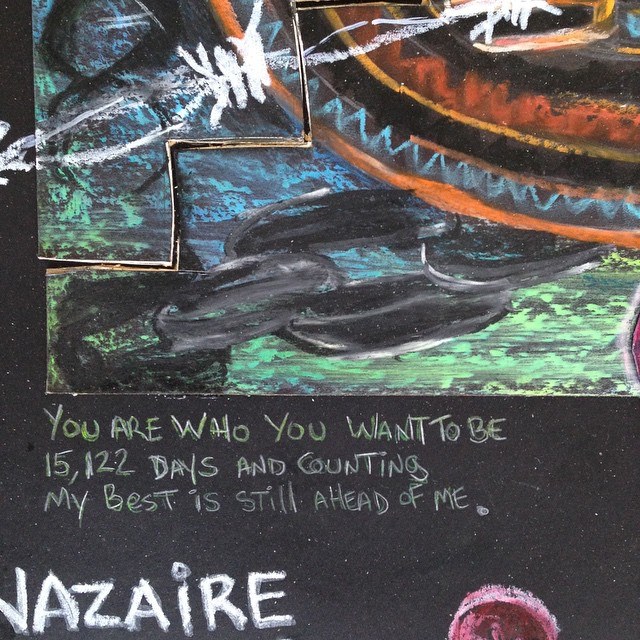 YOU ARE WHO YOU WANT TO BE
15,122 DAYS AND COUNTING
MY BEST IS STILL AHEAD OF ME.
NAZAiRE